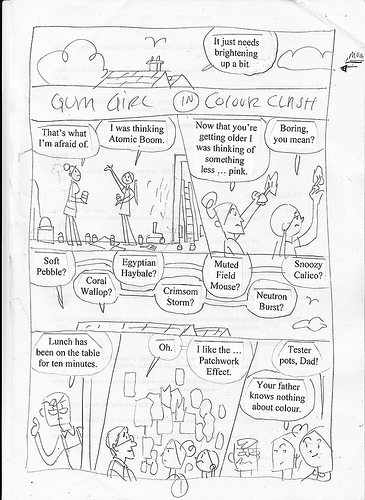 It just needs
brightening
up a bit
GUM GIRL IN COLOUR CLASH
That's what
I'm afraid of.
I was thinking
Atomic Boom.
Now that you're
getting older I
was thinking of
something
less ... pink.
Boring,
you mean?
Soft
Pebble?
Coral
Wallop?
Egyptian
Haybale?
Crimsom
Storm?
Muted
Field
Mouse?
Neutron
Burst?
Snoozy
Calico?
Lunch has
been on the table
for ten minutes.
Oh.
I like the ...
Patchwork
Effect.
Tester
pots, Dad!
Your father
knows nothing
about colour.
1